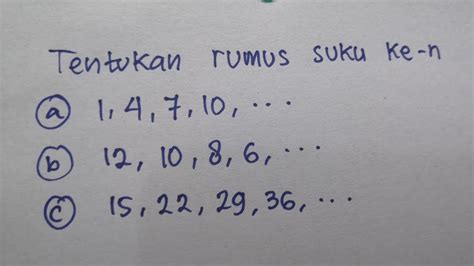 Tentukan rumus suku ke-n
(a) 1, 4, 7, 10, ...
(b) 12, 10, 8, 6, ...
(c) 15, 22, 29, 36, ...